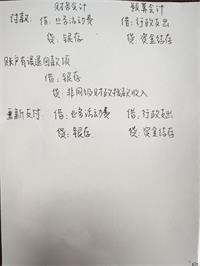 财务会计 预算会计
付款: 借:业务活动费 借:行政支出
贷:银存 贷:资金结存
账户有误退回款项
借:银存
贷:非同级财政拨款收入
重新支付: 借:业务活动费 借:行政支出
贷:银存 贷:资金结存